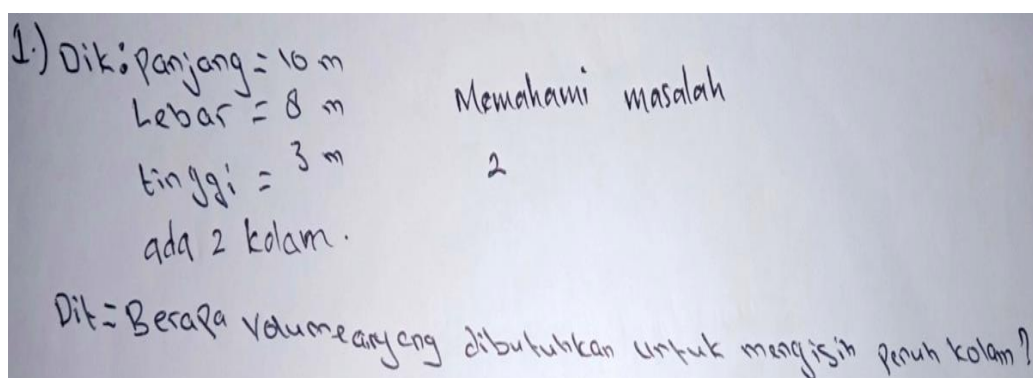 1.) Dik: Panjang = 10 m
Lebar = 8 m
tinggi = 3 m
ada 2 kolam.
Memahami masalah
2
Dit = Berapa volume air yang dibutuhkan untuk mengisih penuh kolam?